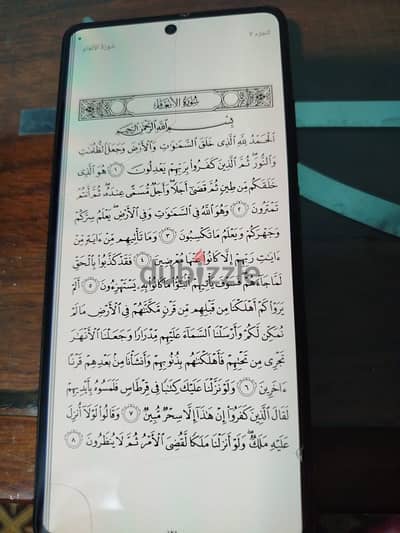 الجزء ٧
سورة الأنعام
سُورَةُ الأَنْعَامِ
بِسْمِ اللَّهِ الرَّحْمَٰنِ الرَّحِيمِ
الْحَمْدُ لِلَّهِ الَّذِي خَلَقَ السَّمَاوَاتِ وَالْأَرْضَ وَجَعَلَ الظُّلُمَاتِ
وَالنُّورَ ثُمَّ الَّذِينَ كَفَرُوا بِرَبِّهِمْ يَعْدِلُونَ ١ هُوَ الَّذِي
خَلَقَكُم مِّن طِينٍ ثُمَّ قَضَىٰ أَجَلًا وَأَجَلٌ مُّسَمًّى عِندَهُ ثُمَّ أَنتُمْ
تَمْتَرُونَ ٢ وَهُوَ اللَّهُ فِي السَّمَاوَاتِ وَفِي الْأَرْضِ يَعْلَمُ سِرَّكُمْ
وَجَهْرَكُمْ وَيَعْلَمُ مَا تَكْسِبُونَ ٣ وَمَا تَأْتِيهِم مِّنْ آيَةٍ مِّنْ
آيَاتِ رَبِّهِمْ إِلَّا كَانُوا عَنْهَا مُعْرِضِينَ ٤ فَقَدْ كَذَّبُوا بِالْحَقِّ
لَمَّا جَاءَهُمْ فَسَوْفَ يَأْتِيهِمْ أَنبَاءُ مَا كَانُوا بِهِ يَسْتَهْزِءُونَ ٥ أَلَمْ
يَرَوْا كَمْ أَهْلَكْنَا مِن قَبْلِهِم مِّن قَرْنٍ مَّكَّنَّاهُمْ فِي الْأَرْضِ مَا لَمْ
نُمَكِّن لَّكُمْ وَأَرْسَلْنَا السَّمَاءَ عَلَيْهِم مِّدْرَارًا وَجَعَلْنَا الْأَنْهَارَ
تَجْرِي مِن تَحْتِهِمْ فَأَهْلَكْنَاهُم بِذُنُوبِهِمْ وَأَنشَأْنَا مِن بَعْدِهِمْ قَرْنًا
آخَرِينَ ٦ وَلَوْ نَزَّلْنَا عَلَيْكَ كِتَابًا فِي قِرْطَاسٍ فَلَمَسُوهُ بِأَيْدِيهِمْ
لَقَالَ الَّذِينَ كَفَرُوا إِنْ هَٰذَا إِلَّا سِحْرٌ مُّبِينٌ ٧ وَقَالُوا لَوْلَا أُنزِلَ
عَلَيْهِ مَلَكٌ وَلَوْ أَنزَلْنَا مَلَكًا لَّقُضِيَ الْأَمْرُ ثُمَّ لَا يُنظَرُونَ ٨
١٢٨
dubizzle